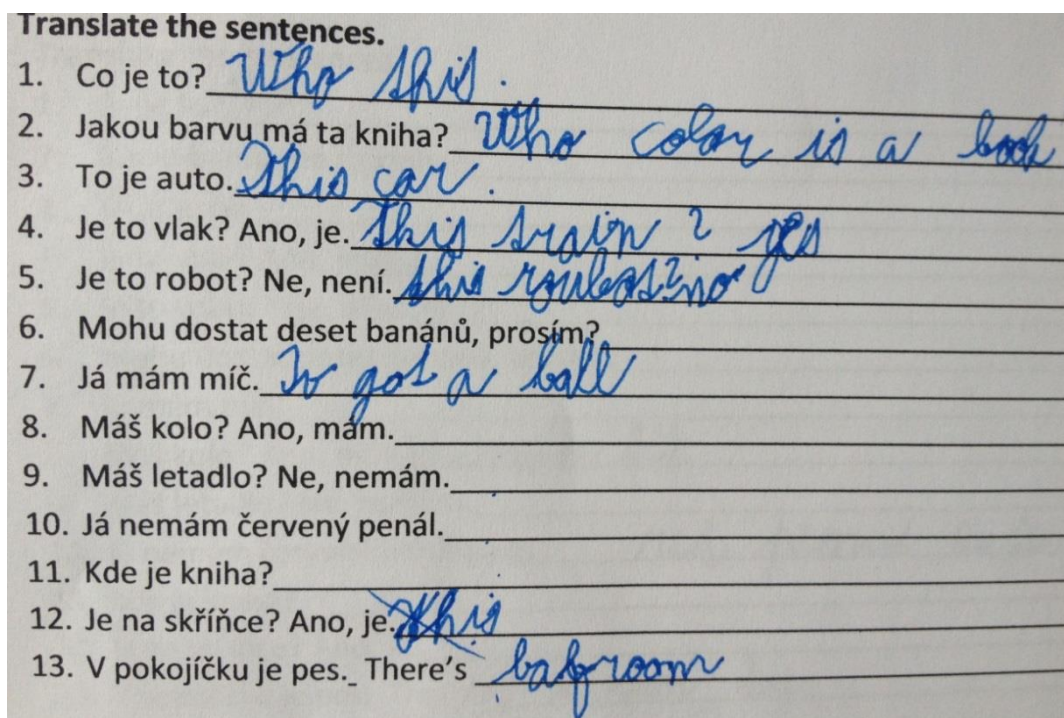 Translate the sentences.
1. Co je to? Who this.
2. Jakou barvu má ta kniha? Who color is a book
3. To je auto. This car.
4. Je to vlak? Ano, je. This train? yes
5. Je to robot? Ne, není. this roubot? no
6. Mohu dostat deset banánů, prosím?
7. Já mám míč. got a ball
8. Máš kolo? Ano, mám.
9. Máš letadlo? Ne, nemám.
10. Já nemám červený penál.
11. Kde je kniha?
12. Je na skříňce? Ano, je. this
13. V pokojíčku je pes. There's room